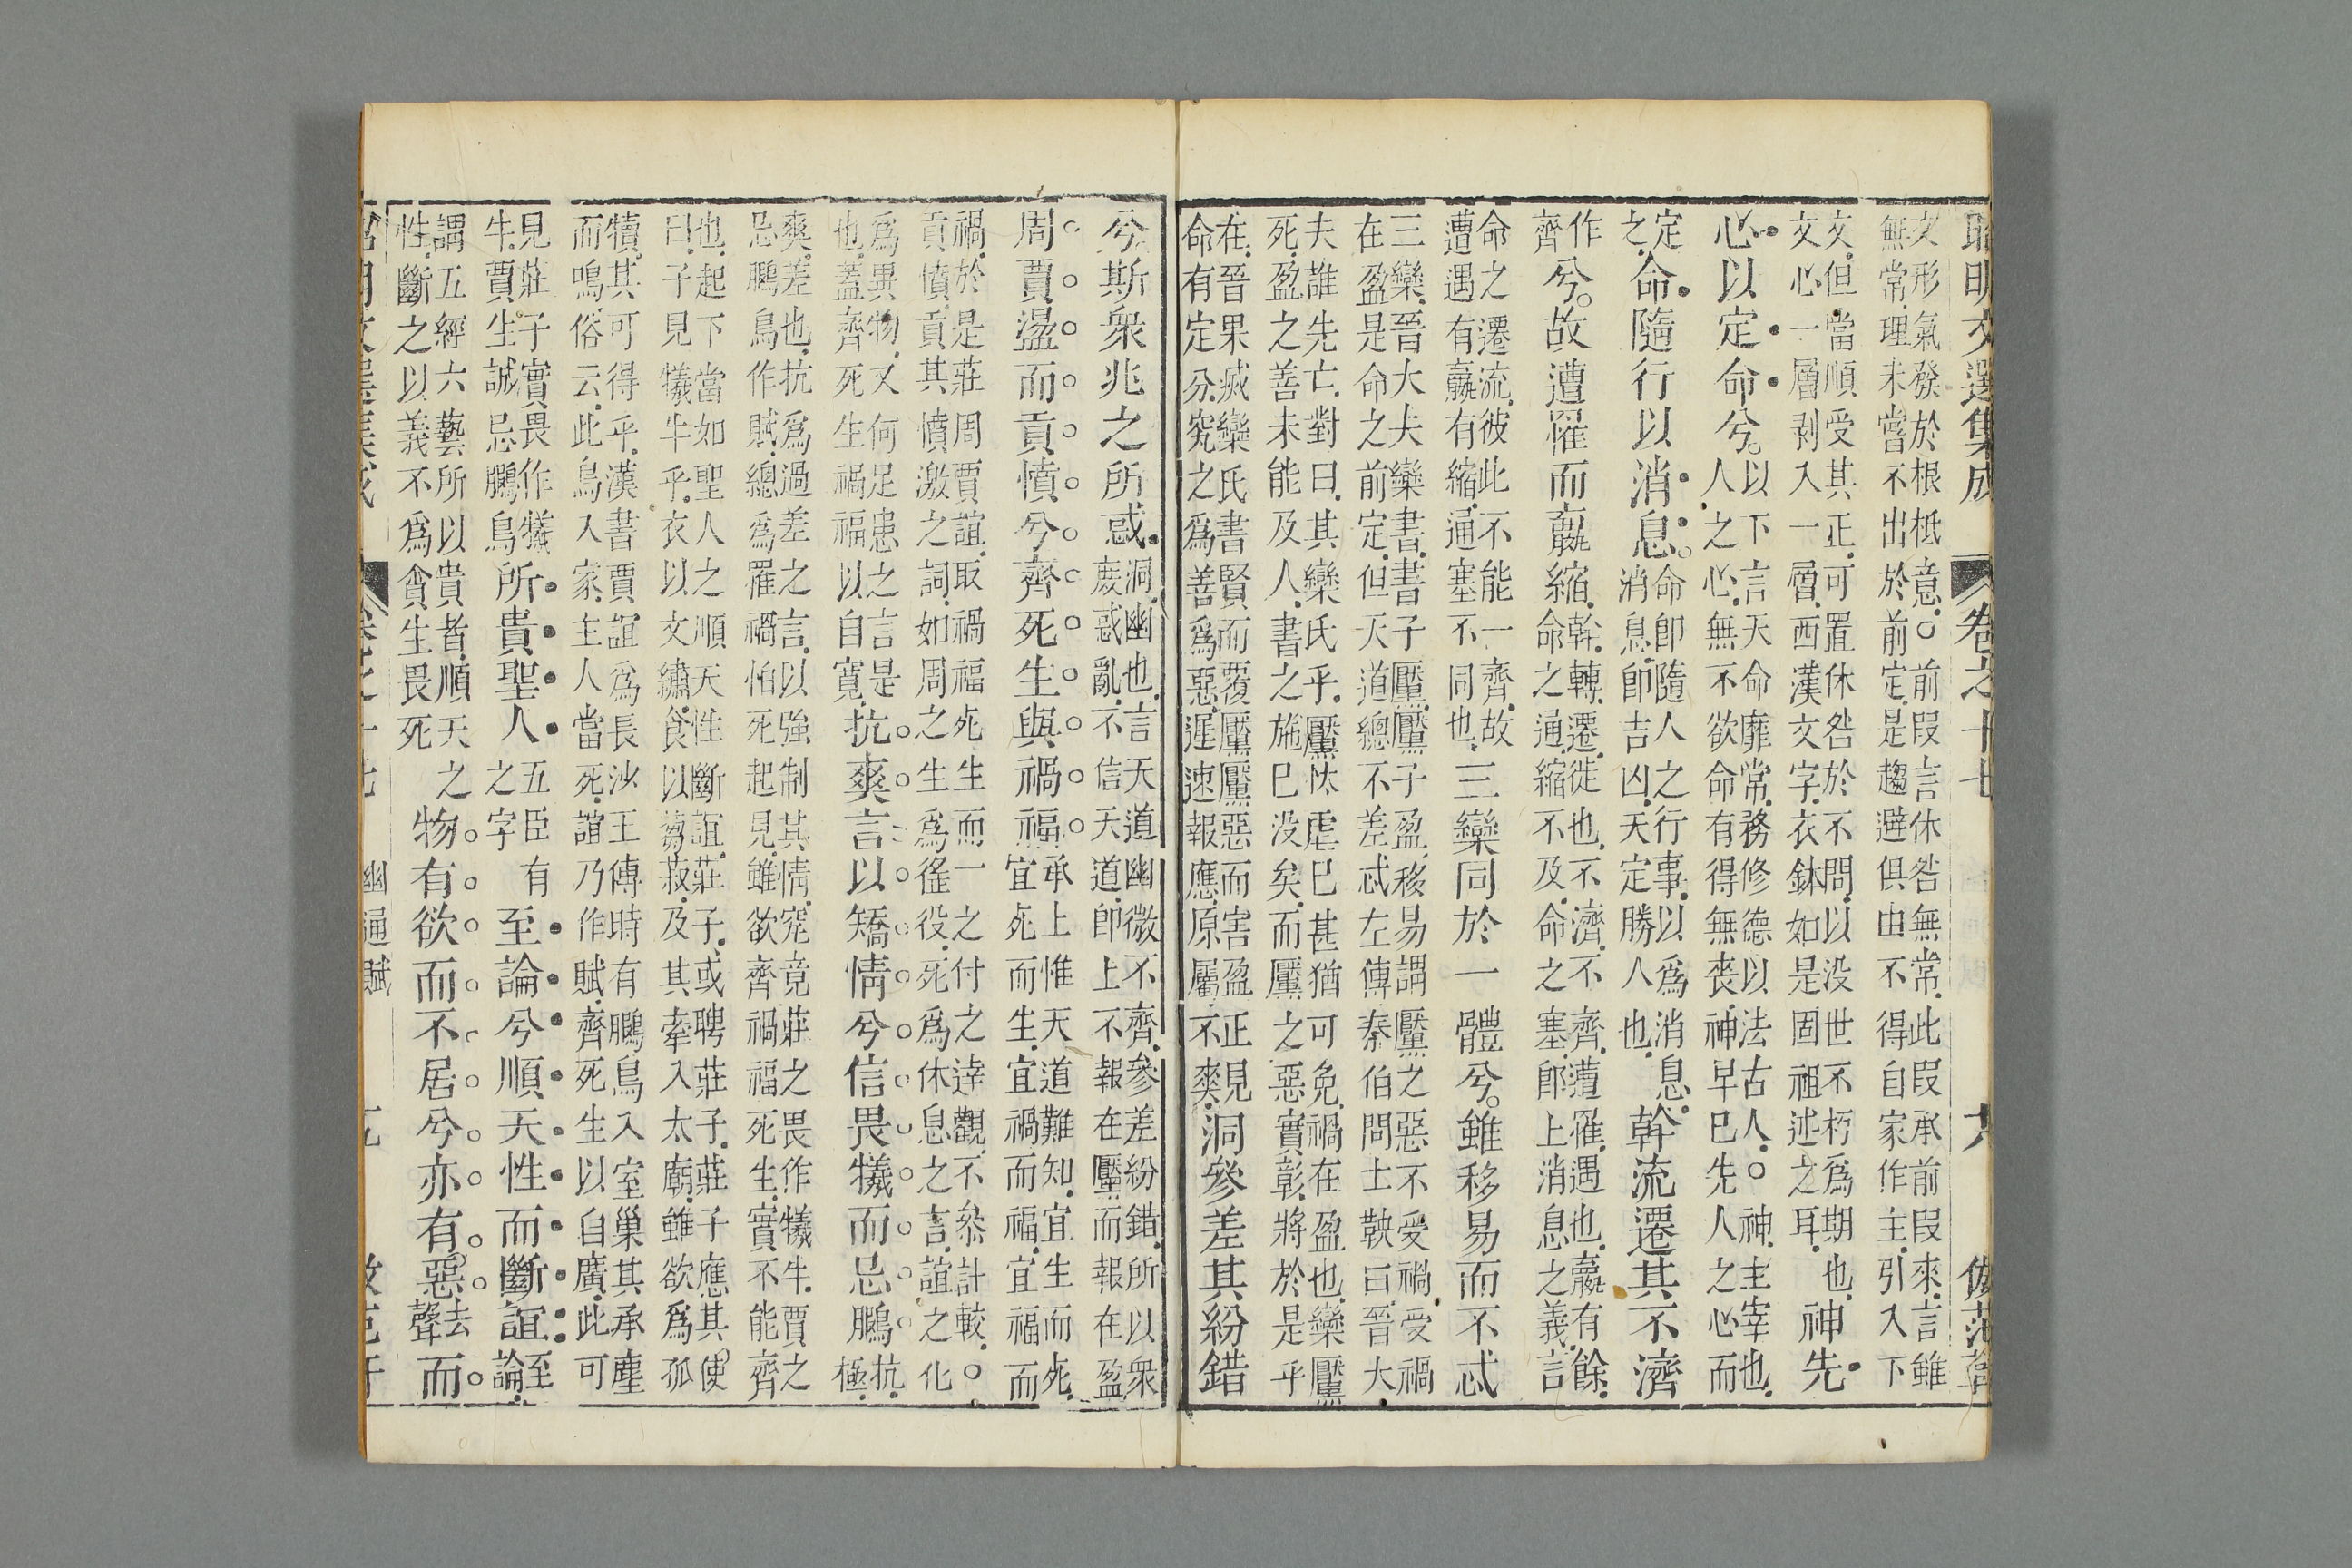 昭明文選集成 卷之十七
文形氣發於根柢意。○前叚言休咎無常.此叚承前叚來.言雖
無常.理未嘗不出於前定.是趨避俱由不得自家作主.引入下
文.但當順受其正.可置休咎於不問.以没世不朽爲期也.
文心一層剥入一層.西漢文字.衣鉢如是.固祖述之耳.
神先
心以定命兮。
以下言天命靡常.務修德以法古人.○神.主宰也.
人之心.無不欲命有得無喪.神早巳先人之心而
定
之.
命隨行以消息。
命即隨人之行事.以爲消息.
消息.即吉凶.天定勝人也.
幹流遷其不濟
作
齊
兮。故遭罹而嬴縮.
幹.轉.遷.徙也.不濟.不齊.遭罹.遇也.嬴有餘.
命之通.縮不及.命之塞.即上消息之義.言
命之遷流.彼此不能一齊.故
遭遇有嬴有縮.通塞不同也.
三欒同於一體兮。雖移易而不忒
三欒.晉大夫欒書.書子黶.黶子盈.移易.謂黶之惡不受禍.受禍
在盈.是命之前定.但天道總不差忒.左傳秦伯問士鞅曰.晉大
夫誰先亡.對曰.其欒氏乎.黶汰虐巳甚.猶可免.禍在盈也.欒黶
死.盈之善未能及人.書之施巳没矣.而黶之惡實彰.將於是乎
在.晉果滅欒氏.書賢而覆黶.黶惡而害盈.正見
命有定分.究之爲善爲惡.遲速報應.原屬不爽.
洞參差其紛錯
兮。斯衆兆之所惑.
洞.幽也.言天道幽微不齊.參差紛錯.所以衆
庶惑亂.不信天道.即上不報在黶而報在盈
周賈盪而貢憤兮。齊死生與禍福。
承上惟天道難知.宜生而死.
宜死而生.宜禍而福.宜福而
禍.於是莊周賈誼.取禍福死生而一之.付之達觀.不叅計較.○
貢憤.貢其憤激之詞.如周之生爲徭役.死爲休息之言.誼之化
爲異物.又何足患之言是
也.蓋齊死生禍福以自寛.
抗爽言以矯情兮。信畏犧而忌鵩。
抗.
極.
爽.差也.抗爲過差之言.以強制其情.究竟莊之畏作犧牛.賈之
忌鵩鳥作賦.總爲罹禍怕死起見.雖欲齊禍福死生.實不能齊
也.起下當如聖人之順天性斷誼.莊子.或聘莊子.莊子應其使
曰.子見犧牛乎.衣以文繡.食以芻菽.及其牽入太廟.雖欲爲孤
犢.其可得乎.漢書賈誼爲長沙王傅時.有鵩鳥入室.巢其承塵
而鳴.俗云.此鳥入家.主人當死.誼乃作賦.齊死生以自廣.此可
見莊子實畏作犧
牛.賈生誠忌鵩鳥
所貴聖人
五臣有
之字
至論兮順天性而斷誼.
至
論.
謂五經六藝.所以貴者.順天之
性.斷之以義.不爲貪生畏死
物有欲而不居兮。亦有惡
去
聲
而
昭明文選集成 卷之十七 幽通賦